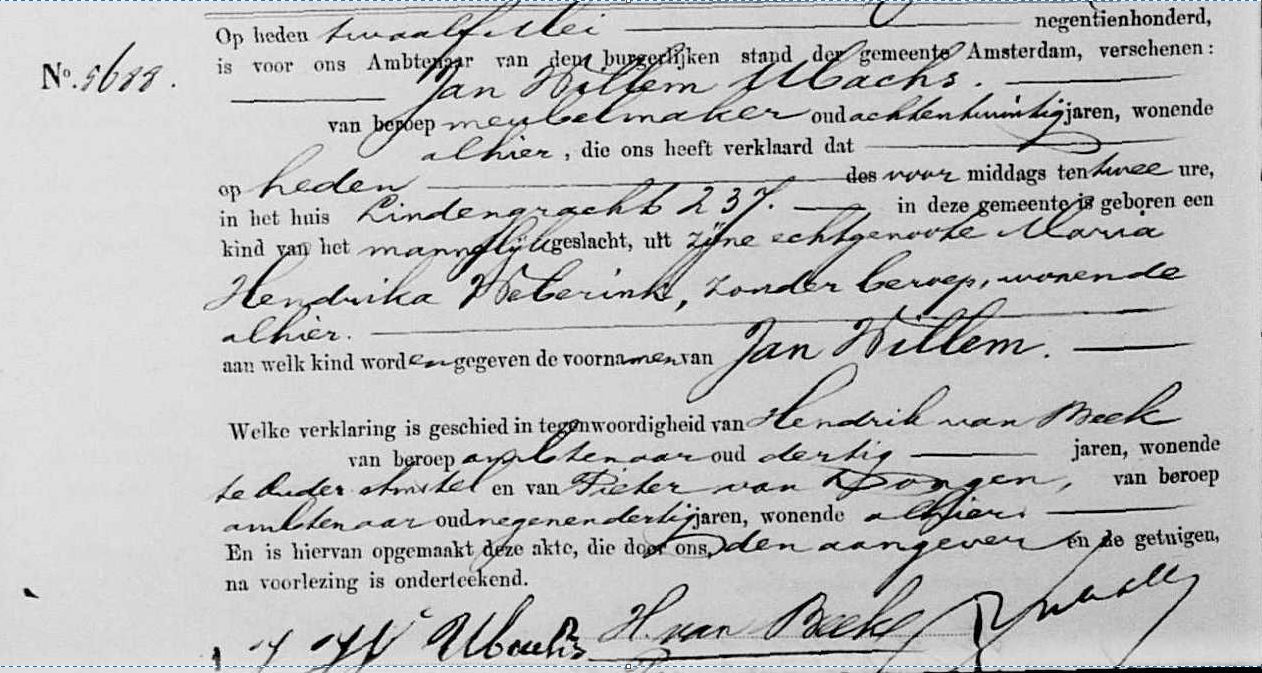 Op heden twaalf Mei negentienhonderd,
is voor ons Ambtenaar van den burgerlijken stand der gemeente Amsterdam, verschenen:
No. 5688.
Jan Willem Ubachs.
van beroep meubelmaker oud achtentwintig jaren, wonende
alhier, die ons heeft verklaard dat
op heden des voor middags ten twee ure,
in het huis Lindengracht 237. in deze gemeente is geboren een
kind van het mannelijk geslacht, uit zijne echtgenoote Maria
Hendrika Weberink, zonder beroep, wonende
alhier.
aan welk kind worden gegeven de voornamen van Jan Willem.
Welke verklaring is geschied in tegenwoordigheid van Hendrik van Beek
van beroep ambtenaar oud dertig jaren, wonende
te Ouder Amstel en van Pieter van Dongen, van beroep
ambtenaar oud negenendertig jaren, wonende alhier.
En is hiervan opgemaakt deze akte, die door ons, den aangever en de getuigen,
na voorlezing is onderteekend.
Ubachs H. van Beek